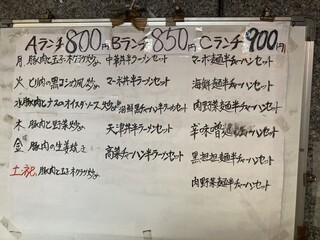 Aランチ800円 Bランチ850円 Cランチ900円
月 豚肉と玉子キクラゲ炒め 中華丼半ラーメンセット マーボ麺半チャーハンセット
火 豚肉の黒コショウ炒め マーボ丼半ラーメンセット 海鮮麺半チャーハンセット
水 豚肉とナスのオイスターソース炒め 海鮮黒チャーハン半ラーメンセット 肉野菜麺半チャーハンセット
木 豚肉と野菜炒め 天津丼半ラーメンセット 辛味噌麺半チャーハンセット
金 豚肉の生姜焼き 高菜チャーハン半ラーメンセット 黒担担麺半チャーハンセット
土祝 豚肉と玉子キクラゲ炒め 肉野菜麺半チャーハンセット